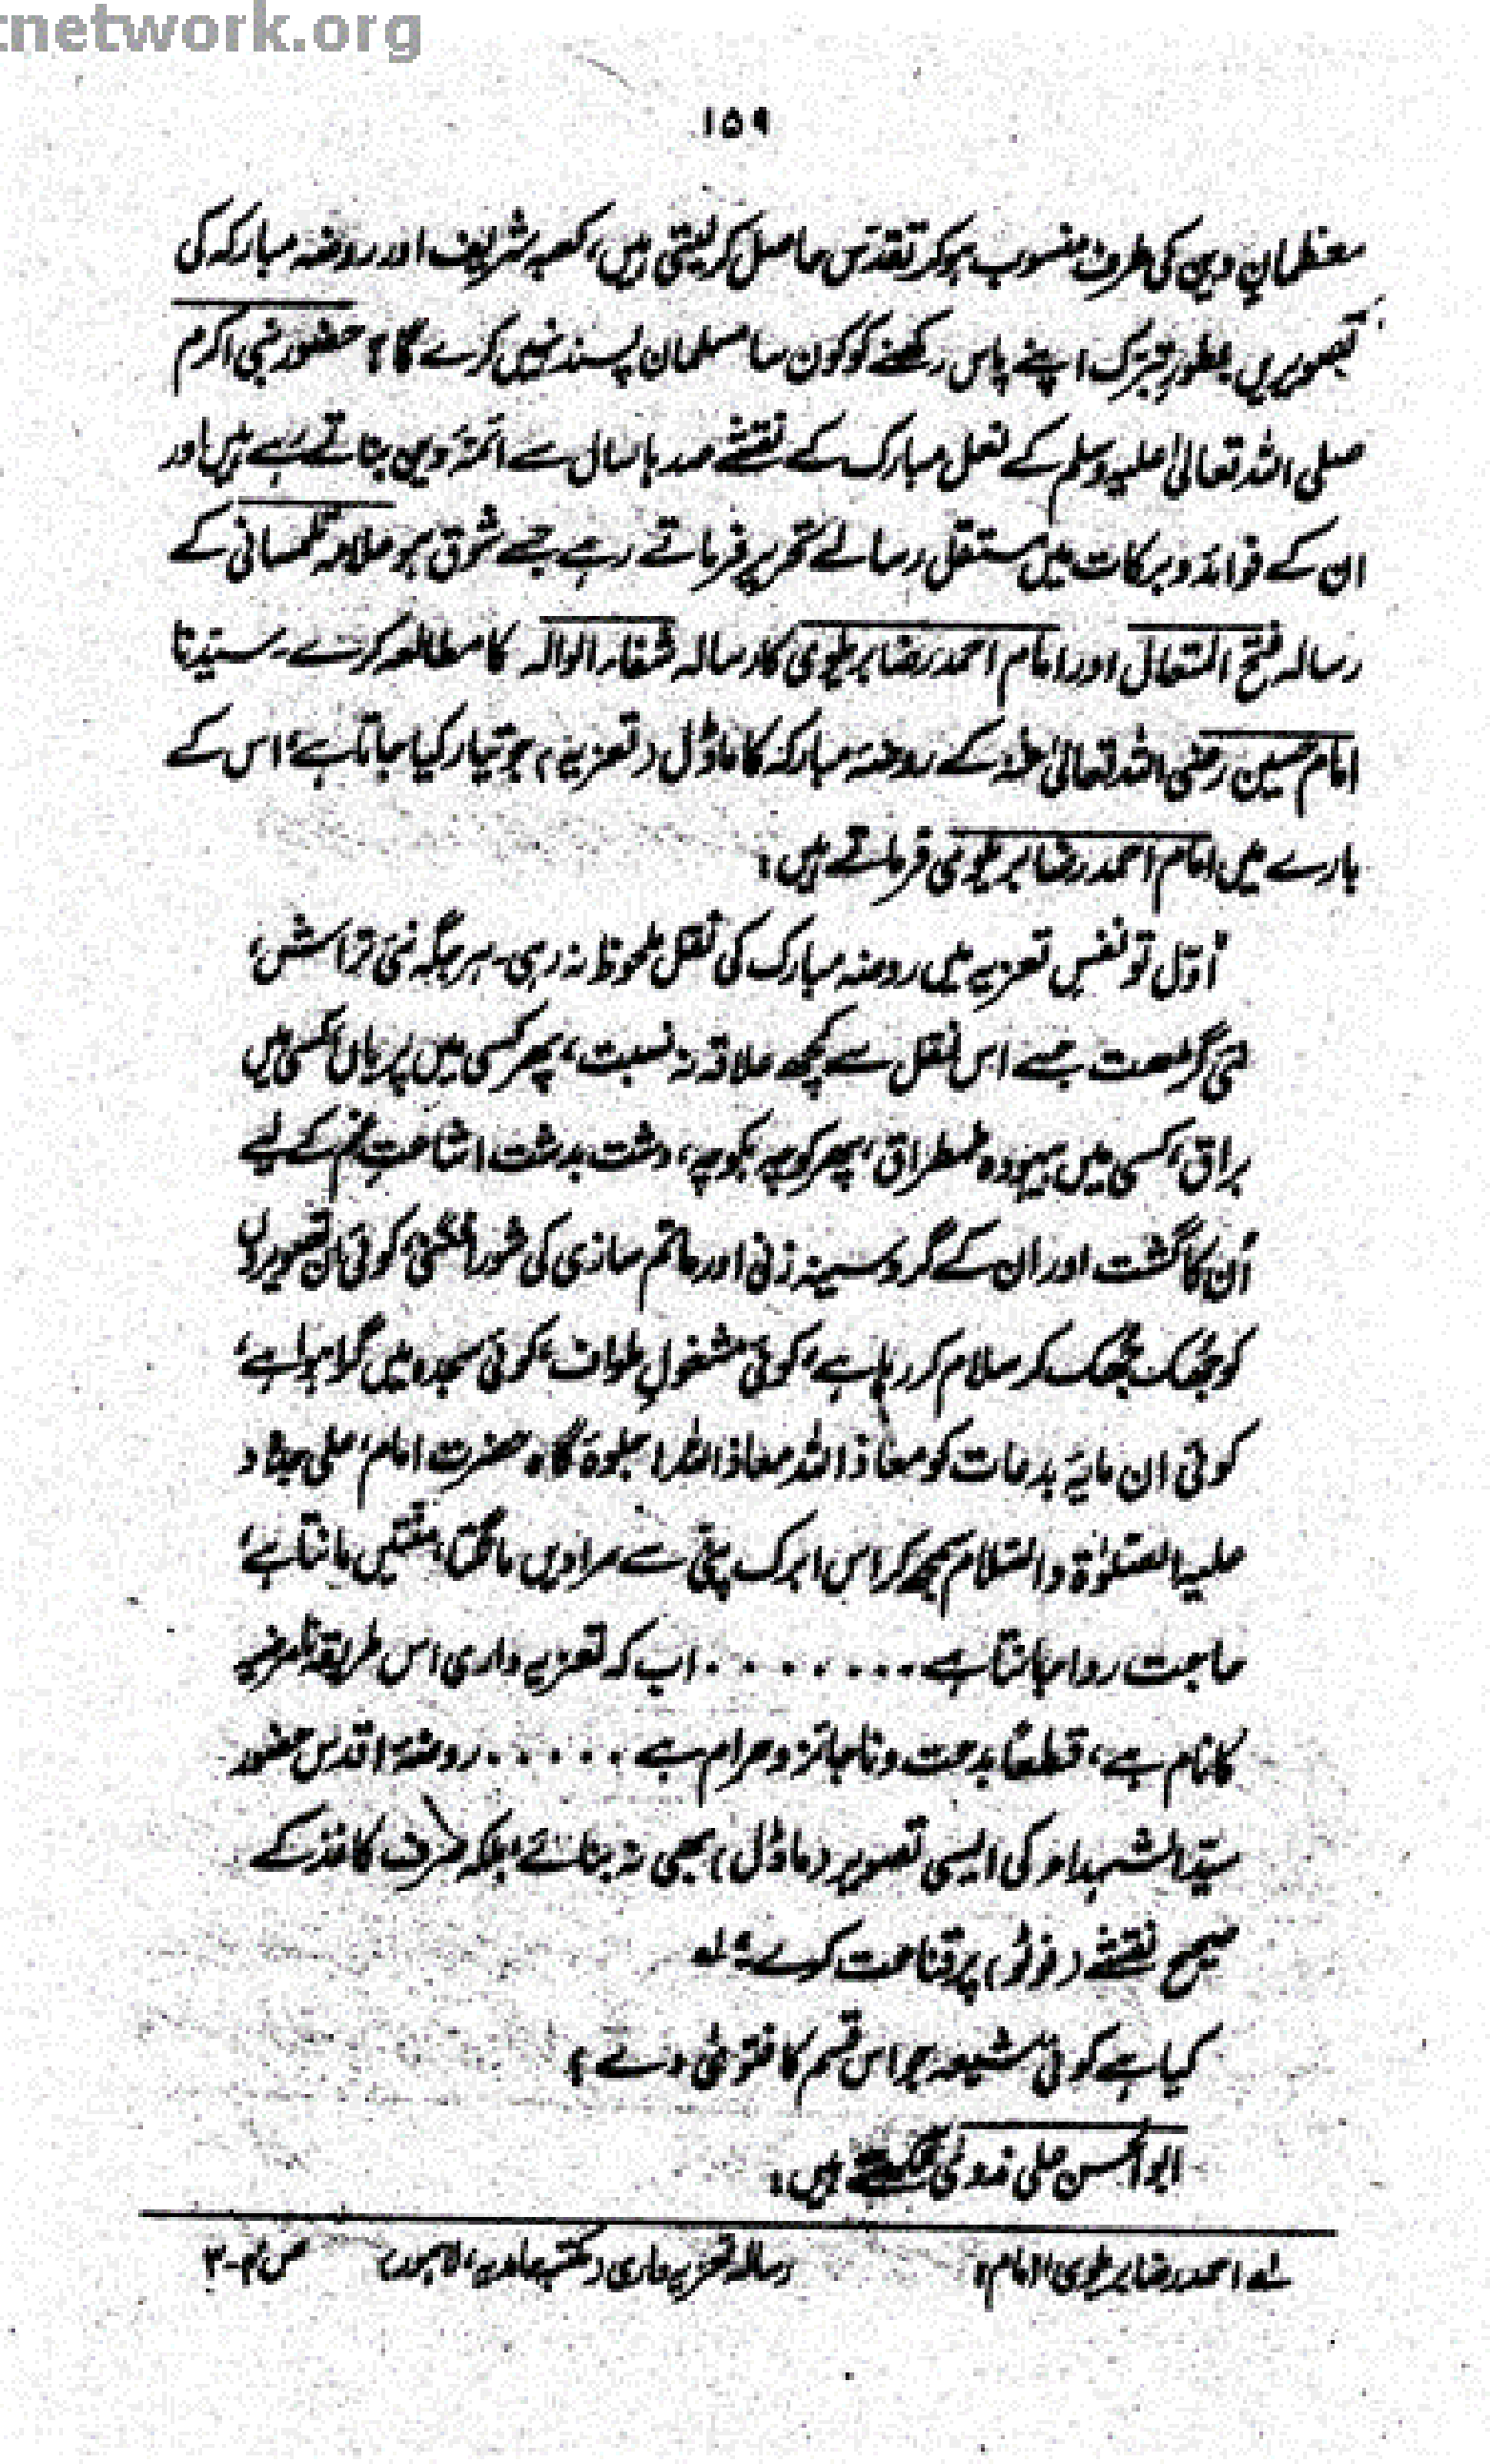 tnetwork.org
۱۵۹
معظمانِ دین کی طرف منسوب ہو کر تقدس حاصل کر لیتی ہیں، کعبہ شریف اور روضہ مبارکہ کی
تصویریں بطورِ تبرک اپنے پاس رکھنے کو کون سا مسلمان پسند نہیں کرے گا؟ حضور نبی اکرم
صلی اللہ تعالیٰ علیہ وسلم کے نعل مبارک کے نقشے صدہا سال سے ائمۂ دین بناتے رہے ہیں اور
ان کے فوائد و برکات میں مستقل رسالے تحریر فرماتے رہے جسے شوق ہو علامہ تلمسانی کے
رسالہ فتح المتعال اور امام احمد رضا بریلوی کا رسالہ شفاء الوالہ کا مطالعہ کرے۔ سیدنا
امام حسین رضی اللہ تعالیٰ عنہ کے روضۂ مبارکہ کا ماڈل (تعزیہ) جو تیار کیا جاتا ہے، اس کے
بارے میں امام احمد رضا بریلوی فرماتے ہیں:
اوّل تو نفسِ تعزیہ میں روضہ مبارک کی نقل ملحوظ نہ رہی۔ ہر جگہ نئی تراش،
نئی گڑھت جسے اس نقل سے کچھ علاقہ نہ نسبت، پھر کسی میں پریاں، کسی میں
براق، کسی میں بیہودہ طمطراق، پھر کوچہ بکوچہ، دشت بدشت اشاعتِ غم کے لیے
اُن کا گشت اور ان کے گرد سینہ زنی اور ماتم سازی کی شور افگنی، کوئی ان تصویروں
کو جھک جھک کر سلام کر رہا ہے، کوئی مشغولِ طواف، کوئی سجدہ میں گرا ہوا ہے،
کوئی ان مایۂ بدعات کو معاذ اللہ معاذ اللہ! جلوہ گاہِ حضرت امام، علی جدہ و
علیہ الصلوٰۃ والسلام سمجھ کر اس ابرک پنی سے مرادیں مانگتا، منتیں مانتا ہے،
حاجت روا جانتا ہے ........ اب کہ تعزیہ داری اس طریقہ نامرضیہ
کا نام ہے، قطعاً بدعت و ناجائز و حرام ہے ...... روضۂ اقدس حضور
سید الشہداء کی ایسی تصویر (ماڈل) بھی نہ بنائے، بلکہ صرف کاغذ کے
صحیح نقشے (فوٹو) پر قناعت کرے۔" لہ
کیا ہے کوئی شیعہ جو اس قسم کا فتویٰ دے؟
ابوالحسن علی ندوی لکھتے ہیں:
لہ احمد رضا بریلوی، امام: رسالہ تعزیہ داری (مکتبہ حامدیہ، لاہور) ص ۴-۳